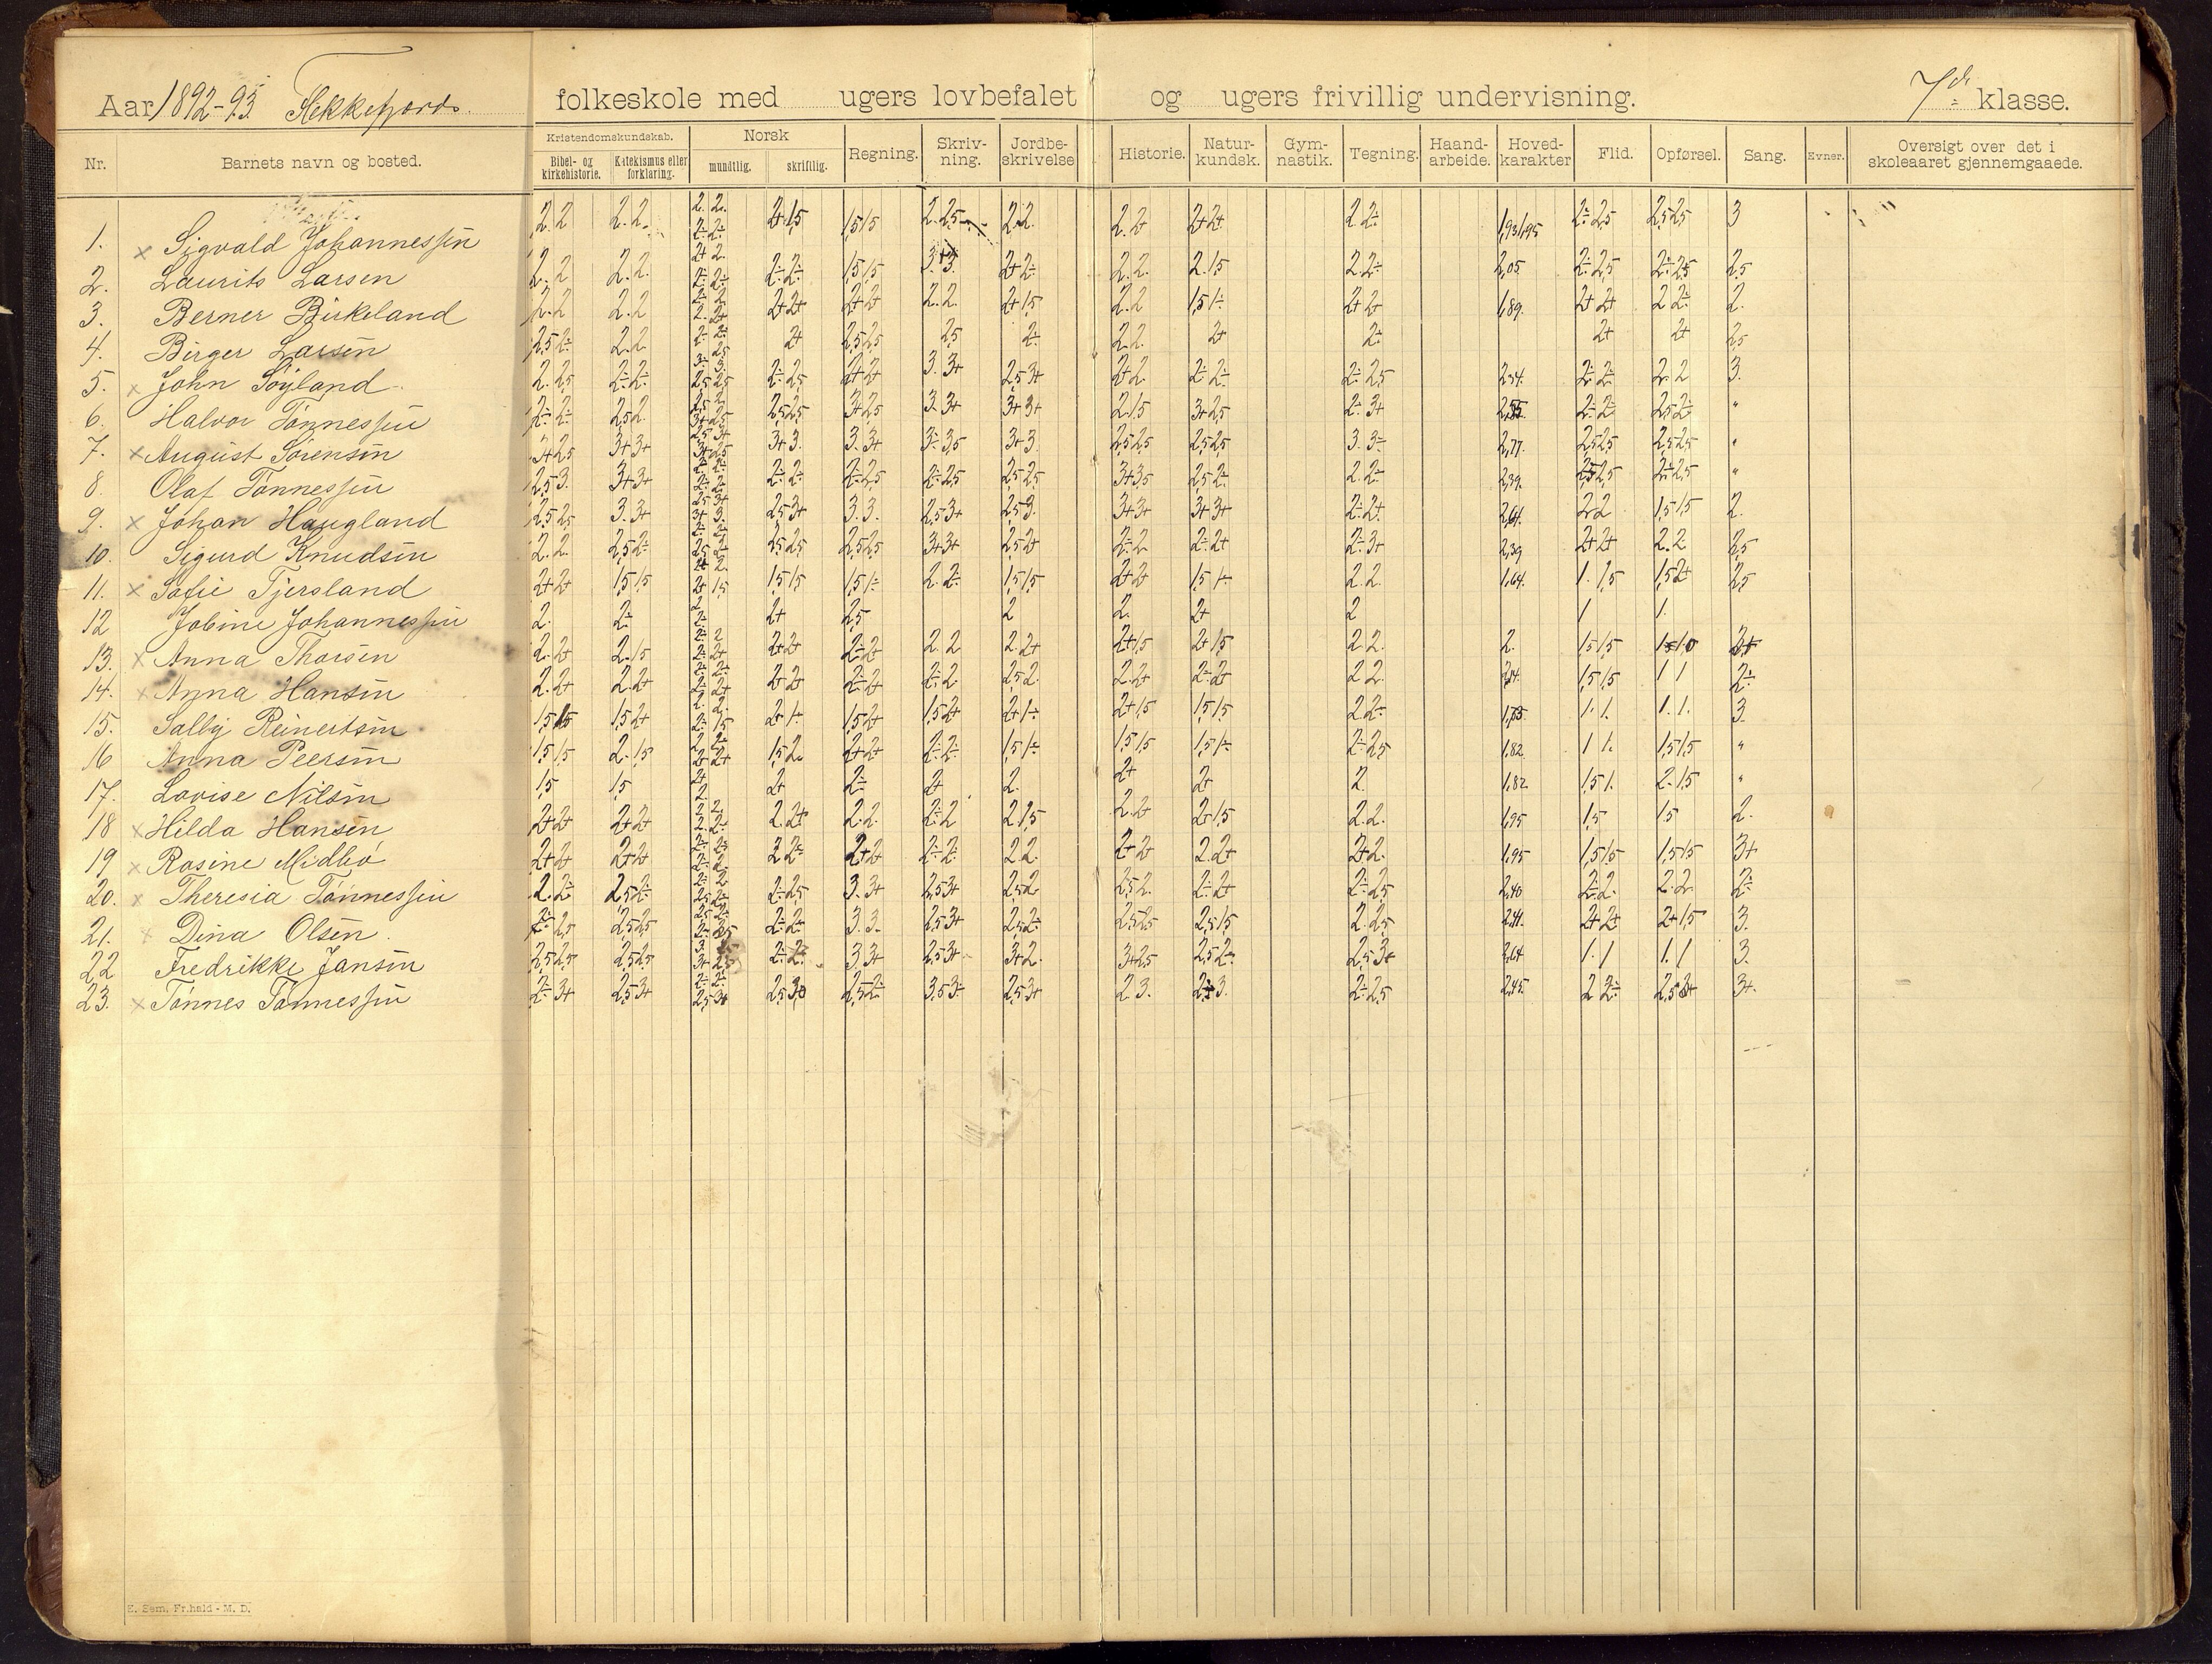 Aar 1892-93. Flekkefjords folkeskole med ugers lovbefalet og ugers frivillig undervisning. 7de klasse.
Nr. Barnets navn og bosted. Kristendomskundskab. Bibel- og kirkehistorie. Katekismus eller forklaring. Norsk mundtlig. skriftlig. Regning. Skriv-ning. Jordbe-skrivelse Historie. Natur-kundsk. Gym-nastik. Tegning. Haand-arbeide. Hoved-karakter Flid. Opførsel. Sang. Evner. Oversigt over det i skoleaaret gjennemgaaede.
1. × Sigvald Johannessen 2. 2 2. 2. 2+ 1,5 1,5 1,5 2. 2,5 2. 2. 2. 2+ 2+ 2+ 2 2÷ 1,93 1,95 2÷ 2,5 2,5 2,5 3
2. Laurits Larsen 2. 2 2. 2. 2÷ 2÷ 1,5 1,5 2+ 2÷ 2. 2. 2. 1,5 2. 2÷ 2,05 2÷ 2,5 2÷ 2,5 2,5
3. Berner Birkeland 2. 2 2. 2 2+ 2+ 2+ 2+ 2. 2. 2+ 1,5 2. 2 1,5 1÷ 2+ 2+ 1,89. 2+ 2+ 2 2÷ 2.
4. Birger Larsen 2,5 2÷ 2. 2 2+ 2,5 2,5 2,5 2÷ 2. 2. 2+ 2÷ 2+ 2+ 2,5
5. × John Søyland 2. 2,5 2÷ 2÷ 2÷ 2,5 2+ 2+ 3. 3+ 2,5 3+ 2+ 2. 2÷ 2÷ 2÷ 2,5 2,34. 2÷ 2÷ 2. 2 3.
6. Halvor Tønnessen 2÷ 2÷ 2,5 2. 2,5 2,5 3+ 2,5 3. 3+ 3+ 3+ 2. 1,5 3+ 2,5 2÷ 3+ 2÷ 2÷ 2,5 2÷ "
7. × August Sørensen 3+ 2,5 3+ 3+ 3+ 3. 3. 3+ 3÷ 3,5 3+ 3. 2,5 2,5 2,5 2,5 3. 3÷ 2,77. 2,5 2,5 2,5 2,5 "
8. Olaf Tønnessen 2,5 3. 3+ 3+ 2÷ 2÷ 2÷ 2,5 2÷ 2,5 2,5 2,5 3+ 3,5 2,5 2÷ 2. 2÷ 2,39. 2,5 2,5 2÷ 2,5 "
9. × Johan Haugland 2,5 2,5 3. 3+ 2,5 3+ 3. 3. 2,5 3+ 2,5 3. 3+ 3+ 3+ 3+ 2÷ 2+ 2,64. 2 2 1,5 1,5 2.
10. Sigurd Knudsen 2. 2. 2,5 2÷ 2,5 2,5 2,5 2,5 3+ 3+ 2,5 2+ 2÷ 2 2÷ 2+ 2÷ 3+ 2,39 2+ 2+ 2. 2 2,5
11. × Sofie Tjersland 2+ 2+ 1,5 1,5 1,5 1,5 1,5 1÷ 2. 2÷ 1,5 1,5 2+ 2+ 1,5 1÷ 2. 2. 1,64. 1. 1,5 1,5 2+ 2,5
12 Jobine Johannessen 2. 2÷ 2+ 2,5 2 2. 2+ 2 1 1.
13. × Anna Thorsen 2. 2+ 2. 1,5 2+ 2+ 2÷ 2+ 2. 2 2. 2+ 2+ 1,5 2+ 1,5 2. 2. 2. 1,5 1,5
14. × Anna Hansen 2. 2+ 2. 2+ 2+ 2+ 2÷ 2+ 2÷ 2. 2,5 2. 2. 2+ 2÷ 2+ 2 2. 1,5 1,5 1 1 2÷
15. Sally Reinertsen 1,5 1,5 1,5 2+ 2+ 1÷ 1,5 2+ 1,5 2+ 2+ 1÷ 2+ 1,5 1,5 1,5 2 2÷ 1. 1. 1. 1. 3.
16 Anna Peersen 1,5 1,5 2. 1,5 1,5 2. 2+ 2+ 2÷ 2÷ 1,5 1÷ 1,5 1,5 1,5 1÷ 2÷ 2,5 1,82 1 1. 1,5 1,5 "
17. Lovise Nilsen 1,5 1,5 2+ 2÷ 2+ 2. 2+ 2+ 2. 1,82 1,5 1. 2. 1,5 "
18 × Hilda Hansen 2+ 2+ 2+ 2+ 2. 2+ 2. 2. 2÷ 2 2. 1,5 2. 2+ 2+ 1,5 2. 2. 1,95 1,5 1,5 2.
19 × Rasine Midbø 2+ 2+ 2+ 2+ 2 2÷ 2+ 2 2÷ 2÷ 2. 2. 2+ 2+ 2. 2+ 2+ 2. 1,95 1,5 1,5 1,5 1,5 3+
20. × Theresia Tønnessen 2. 2÷ 2,5 2÷ 2÷ 2,5 3. 3+ 2,5 3+ 2,5 2 2,5 2. 2÷ 2+ 2÷ 2,5 2,40 2÷ 2. 2. 2. 2÷
21. × Dina Olsen. 2÷ 2,5 2,5 2,5 2÷ 2÷ 3. 3. 2,5 3+ 2,5 2÷ 2,5 2,5 2,5 1,5 2. 2,5 2,41. 2+ 2+ 2+ 1,5 3.
22 Fredrikke Jansen 2,5 2,5 2,5 2,5 2÷ 2÷ 3 3+ 2,5 3+ 3+ 2. 3+ 2,5 2,5 2÷ 2,5 3+ 2,64 1. 1 1. 1 3.
23. × Tønnes Tønnessen 2÷ 3+ 2,5 3+ 2,5 3,0 2,5 2÷ 3,5 3÷ 2,5 3+ 2. 3. 3. 2÷ 2,5 2,45. 2 2÷ 2,5 3+ 3+.
E. Sem. Fr.hald - M. D.